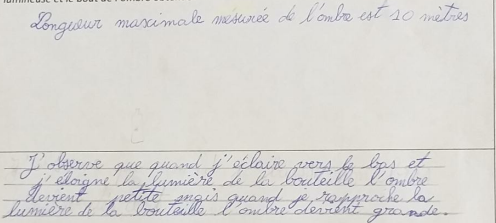 lumineuse et le bout de l'ombre
Longueur maximale mesurée de l'ombre est 10 mètres
J'observe que quand j'éclaire vers le bas et
j'éloigne la lumière de la bouteille l'ombre
devient petite mais quand je rapproche la
lumière de la bouteille l'ombre devient grande.